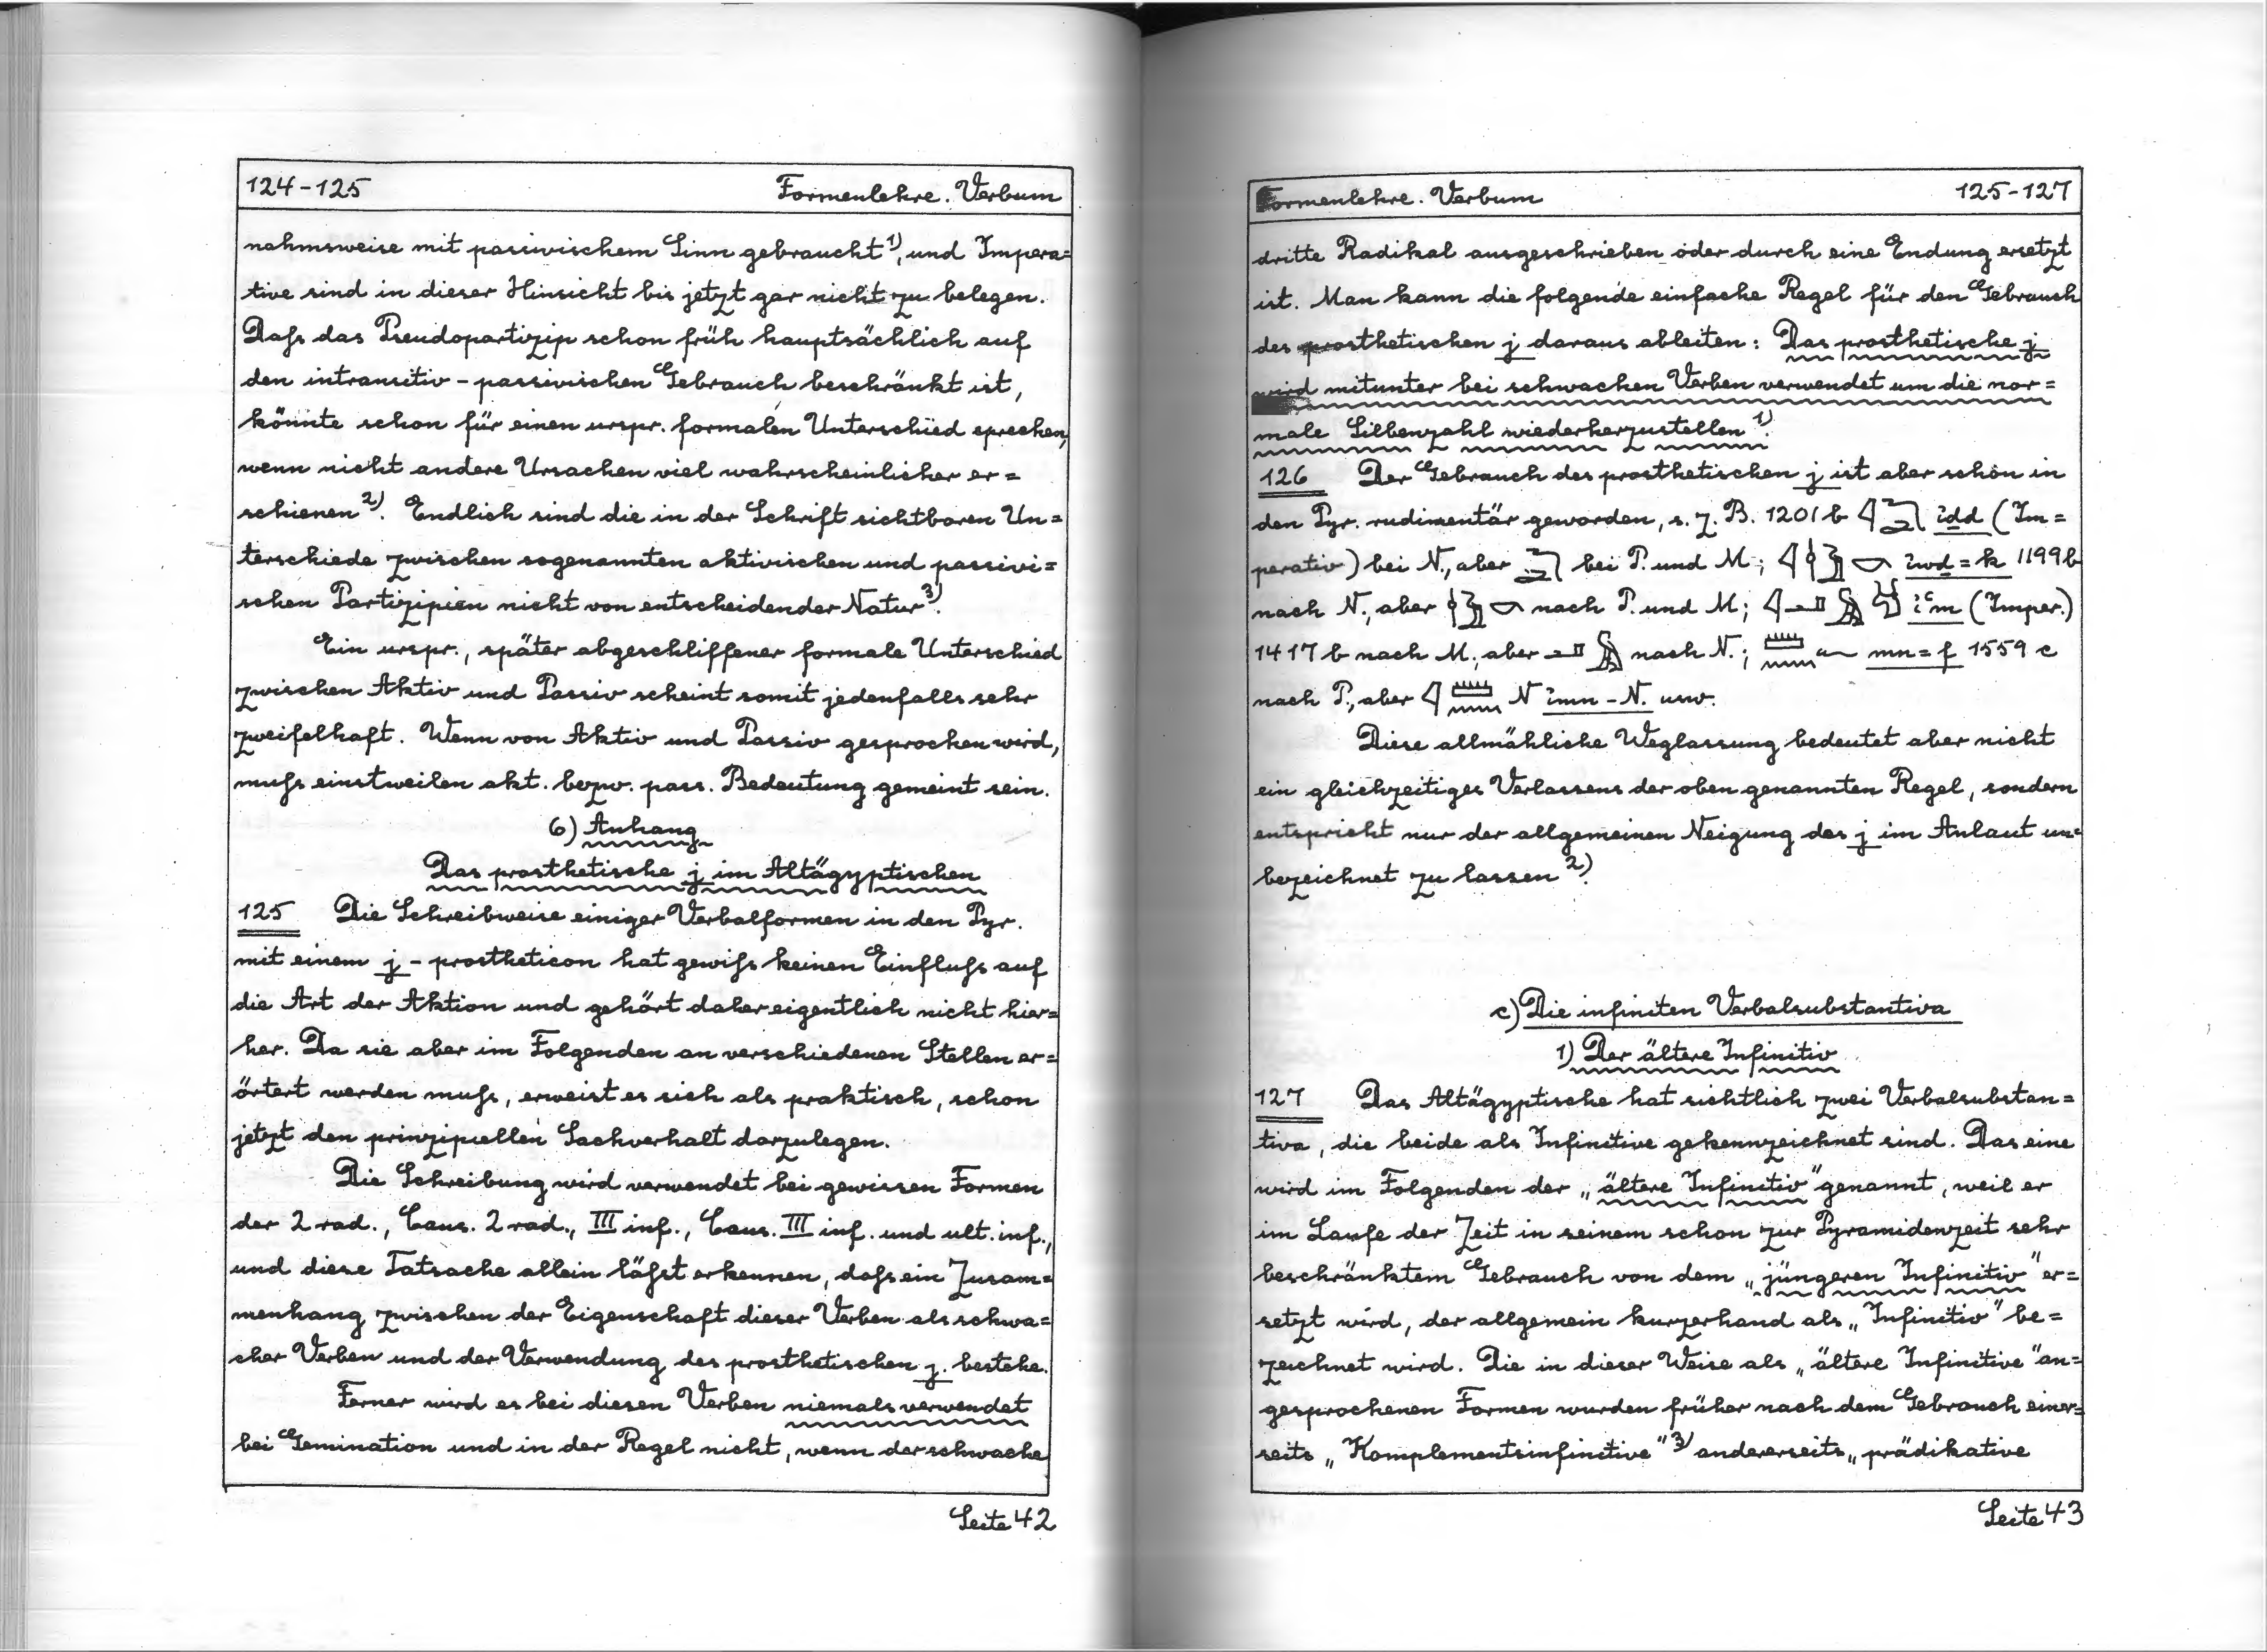 124-125 Formenlehre. Verbum
nahmsweise mit passivischem Sinn gebraucht¹⁾, und Impera=
tive sind in dieser Hinsicht bis jetzt gar nicht zu belegen.
Dafs das Pseudopartizip schon früh hauptsächlich auf
den intransitiv-passivischen Gebrauch beschränkt ist,
könnte schon für einen urspr. formalen Unterschied sprechen,
wenn nicht andere Ursachen viel wahrscheinlicher er=
schienen²⁾. Endlich sind die in der Schrift sichtbaren Un=
terschiede zwischen sogenannten aktivischen und passivi=
schen Partizipien nicht von entscheidender Natur³⁾.
Ein urspr., später abgeschliffener formale Unterschied
zwischen Aktiv und Passiv scheint somit jedenfalls sehr
zweifelhaft. Wenn von Aktiv und Passiv gesprochen wird,
mufs einstweilen akt. bezw. pass. Bedeutung gemeint sein.
6) Anhang
Das prosthetische j im Altägyptischen
125 Die Schreibweise einiger Verbalformen in den Pyr.
mit einem j - prostheticon hat gewifs keinen Einflufs auf
die Art der Aktion und gehört daher eigentlich nicht hier=
her. Da sie aber im Folgenden an verschiedenen Stellen er=
örtert werden mufs, erweist es sich als praktisch, schon
jetzt den prinzipiellen Sachverhalt darzulegen.
Die Schreibung wird verwendet bei gewissen Formen
der 2 rad., Caus. 2 rad., III inf., Caus. III inf. und ult. inf.,
und diese Tatsache allein läfst erkennen, dafs ein Zusam=
menhang zwischen der Eigenschaft dieser Verben als schwa=
cher Verben und der Verwendung des prosthetischen j. bestehe.
Ferner wird es bei diesen Verben niemals verwendet
bei Gemination und in der Regel nicht, wenn der schwache
Seite 42
Formenlehre. Verbum 125-127
dritte Radikal ausgeschrieben oder durch eine Endung ersetzt
ist. Man kann die folgende einfache Regel für den Gebrauch
des prosthetischen j daraus ableiten: Das prosthetische j
wird mitunter bei schwachen Verben verwendet um die nor=
male Silbenzahl wiederherzustellen¹⁾.
126 Der Gebrauch des prosthetischen j ist aber schon in
den Pyr. rudimentär geworden, s. z. B. 1201 b ỉdd (Im=
perativ) bei N., aber bei P. und M.; ỉwd=k 1199 b
nach N., aber nach P. und M; ỉꜥm (Imper.)
1417 b nach M., aber nach N.; mn=f 1559 c
nach P., aber N ỉmn-N. usw.
Diese allmähliche Weglassung bedeutet aber nicht
ein gleichzeitiges Verlassens der oben genannten Regel, sondern
entspricht nur der allgemeinen Neigung des j im Anlaut un=
bezeichnet zu lassen²⁾.
c) Die infiniten Verbalsubstantiva
1) Der ältere Infinitiv
127 Das Altägyptische hat sichtlich zwei Verbalsubstan=
tiva, die beide als Infinitive gekennzeichnet sind. Das eine
wird im Folgenden der „ältere Infinitiv" genannt, weil er
im Laufe der Zeit in seinem schon zur Pyramidenzeit sehr
beschränktem Gebrauch von dem „jüngeren Infinitiv" er=
setzt wird, der allgemein kurzerhand als „Infinitiv" be=
zeichnet wird. Die in dieser Weise als „ältere Infinitive" an=
gesprochenen Formen wurden früher nach dem Gebrauch einer=
seits „Komplementsinfinitive"³⁾ andererseits „prädikative
Seite 43